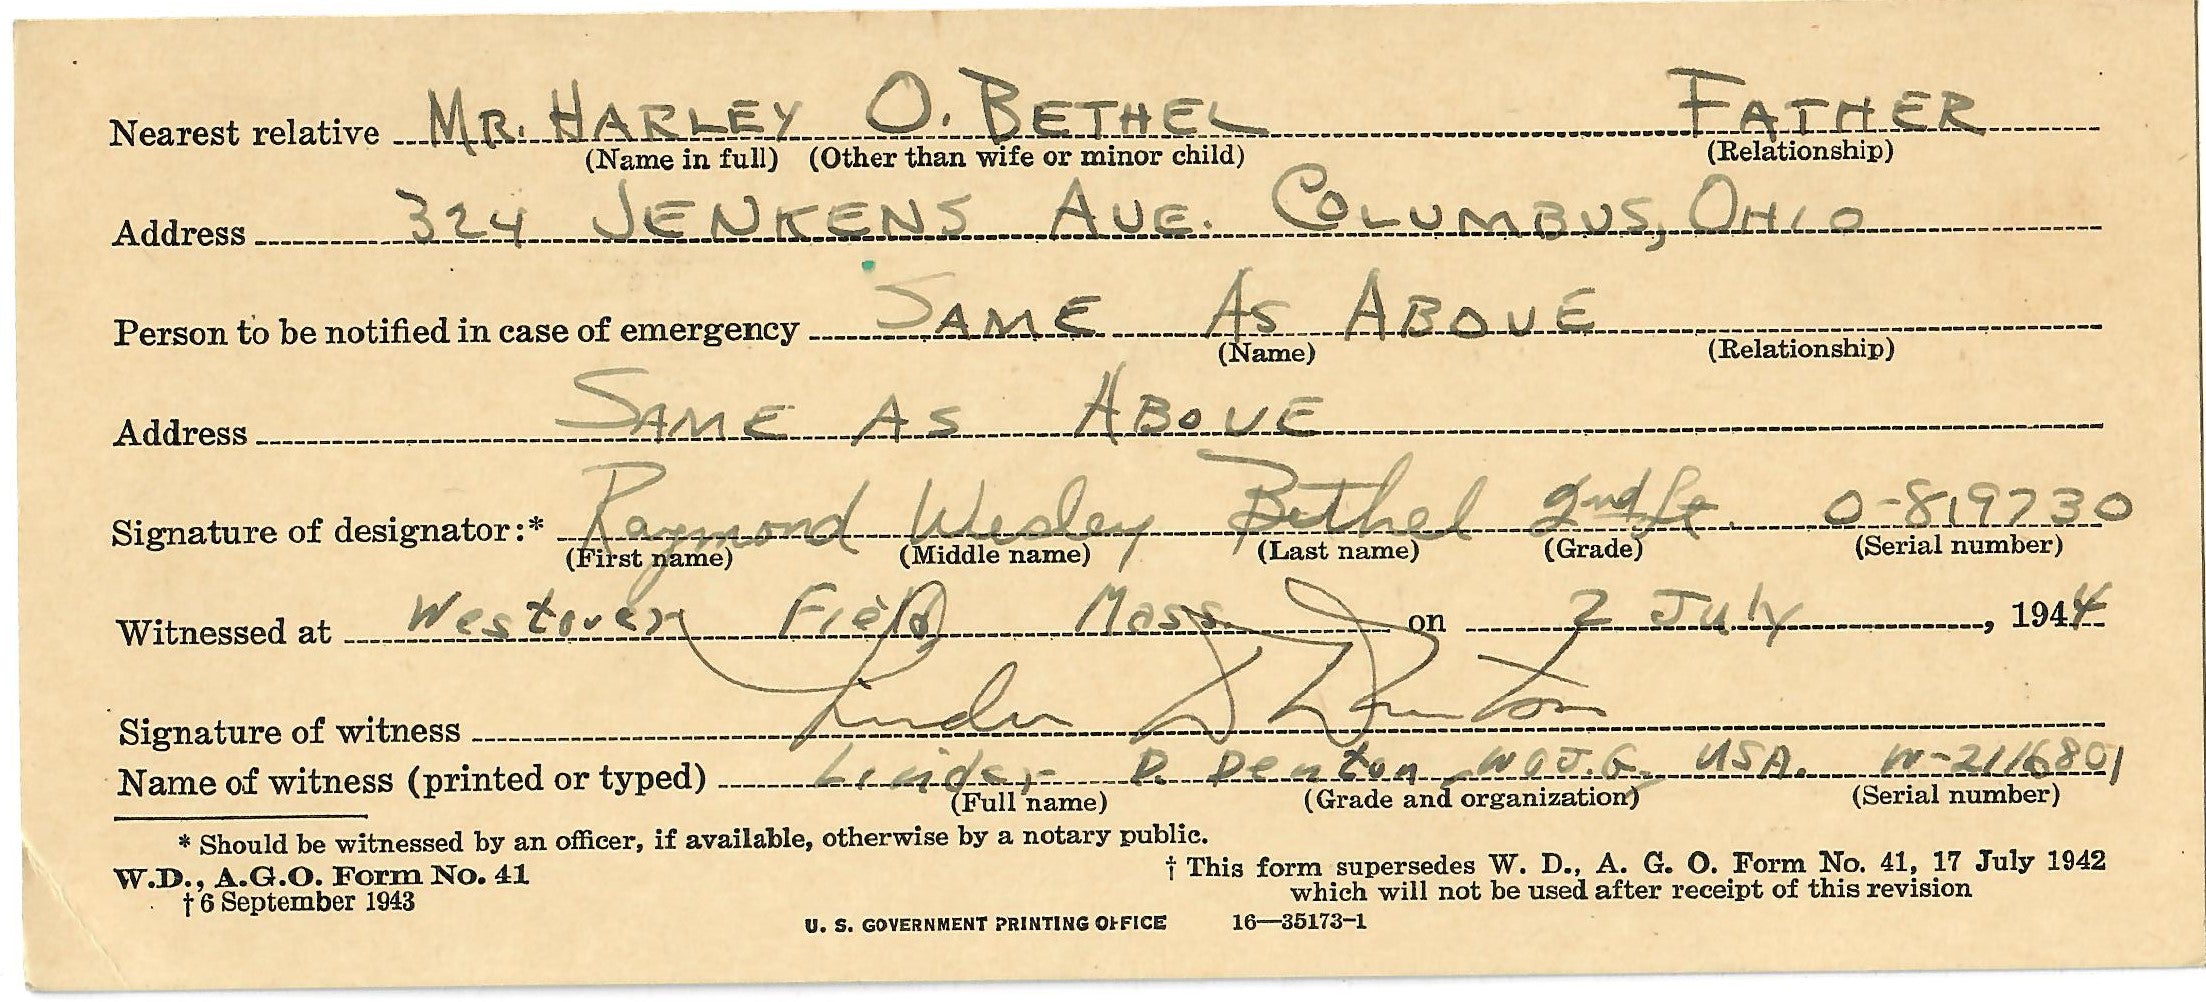 Nearest relative MR. HARLEY O. BETHEL FATHER
(Name in full) (Other than wife or minor child) (Relationship)
Address 324 JENKENS AVE. COLUMBUS, OHIO
Person to be notified in case of emergency SAME AS ABOVE
(Name) (Relationship)
Address SAME AS ABOVE
Signature of designator:* Raymond Wesley Bethel 2nd Lt. O-819730
(First name) (Middle name) (Last name) (Grade) (Serial number)
Witnessed at Westover Field Mass. on 2 July, 1944
Signature of witness Linder D Denton
Name of witness (printed or typed) Linder D. Denton, WOJ.G, USA. W-2116801
(Full name) (Grade and organization) (Serial number)
* Should be witnessed by an officer, if available, otherwise by a notary public.
W.D., A.G.O. Form No. 41
† 6 September 1943
† This form supersedes W. D., A. G. O. Form No. 41, 17 July 1942
which will not be used after receipt of this revision
U. S. GOVERNMENT PRINTING OFFICE 16—35173-1